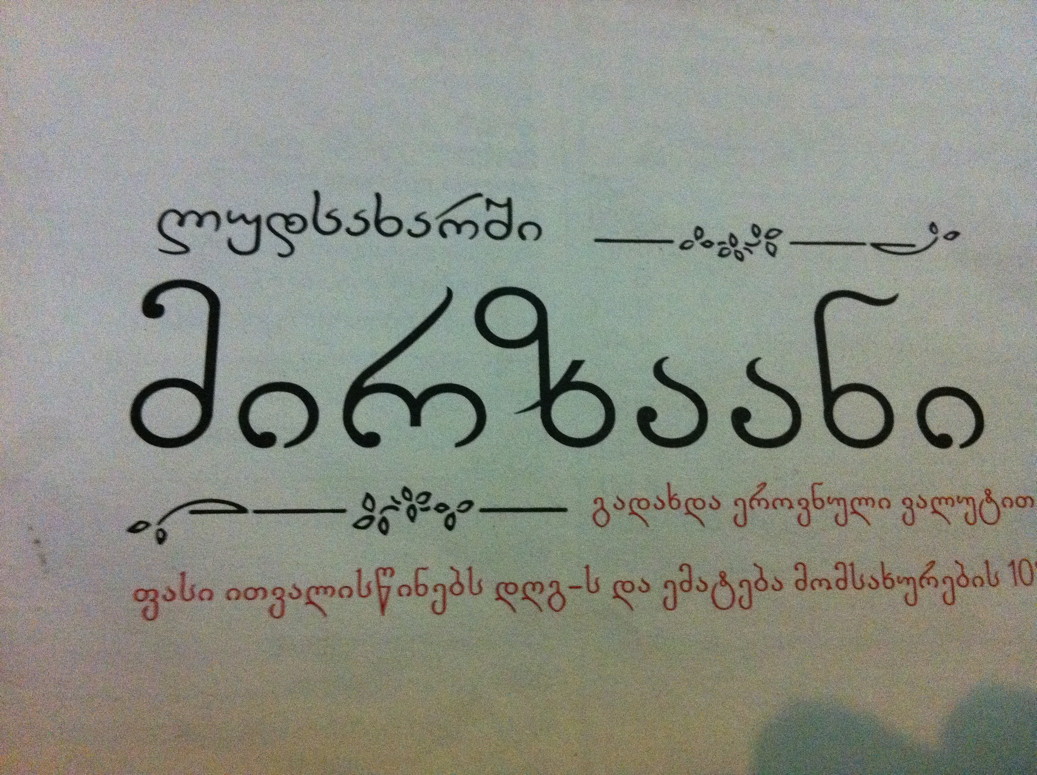 ლუდსახარში
მირზაანი
გადახდა ეროვნული ვალუტით
ფასი ითვალისწინებს დღგ-ს და ემატება მომსახურების 10